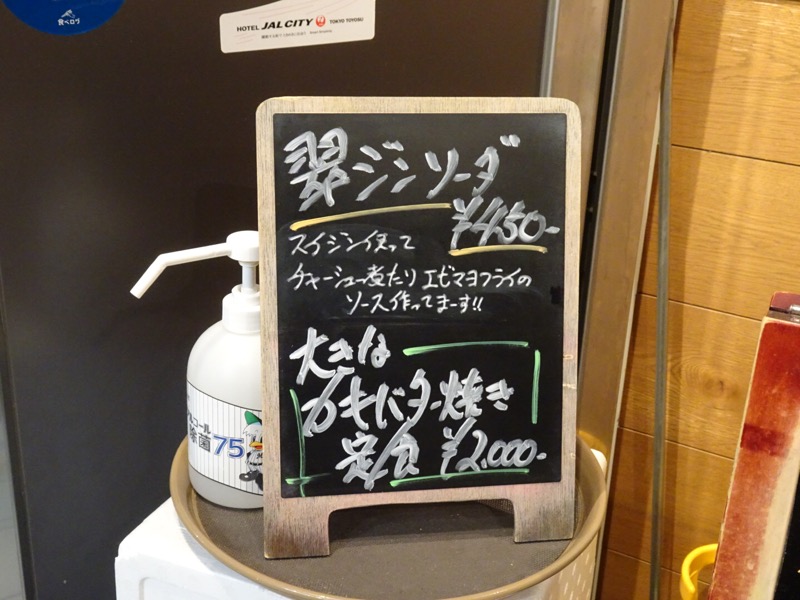 食べログ
HOTEL JAL CITY TOKYO TOYOSU
翠ジンソーダ
¥450-
スイジン使って
チャーシュー煮たり エビマヨフライの
ソース作ってまーす!!
大きな
カキバター焼き
定食 ¥2,000-
アルコール
除菌 75